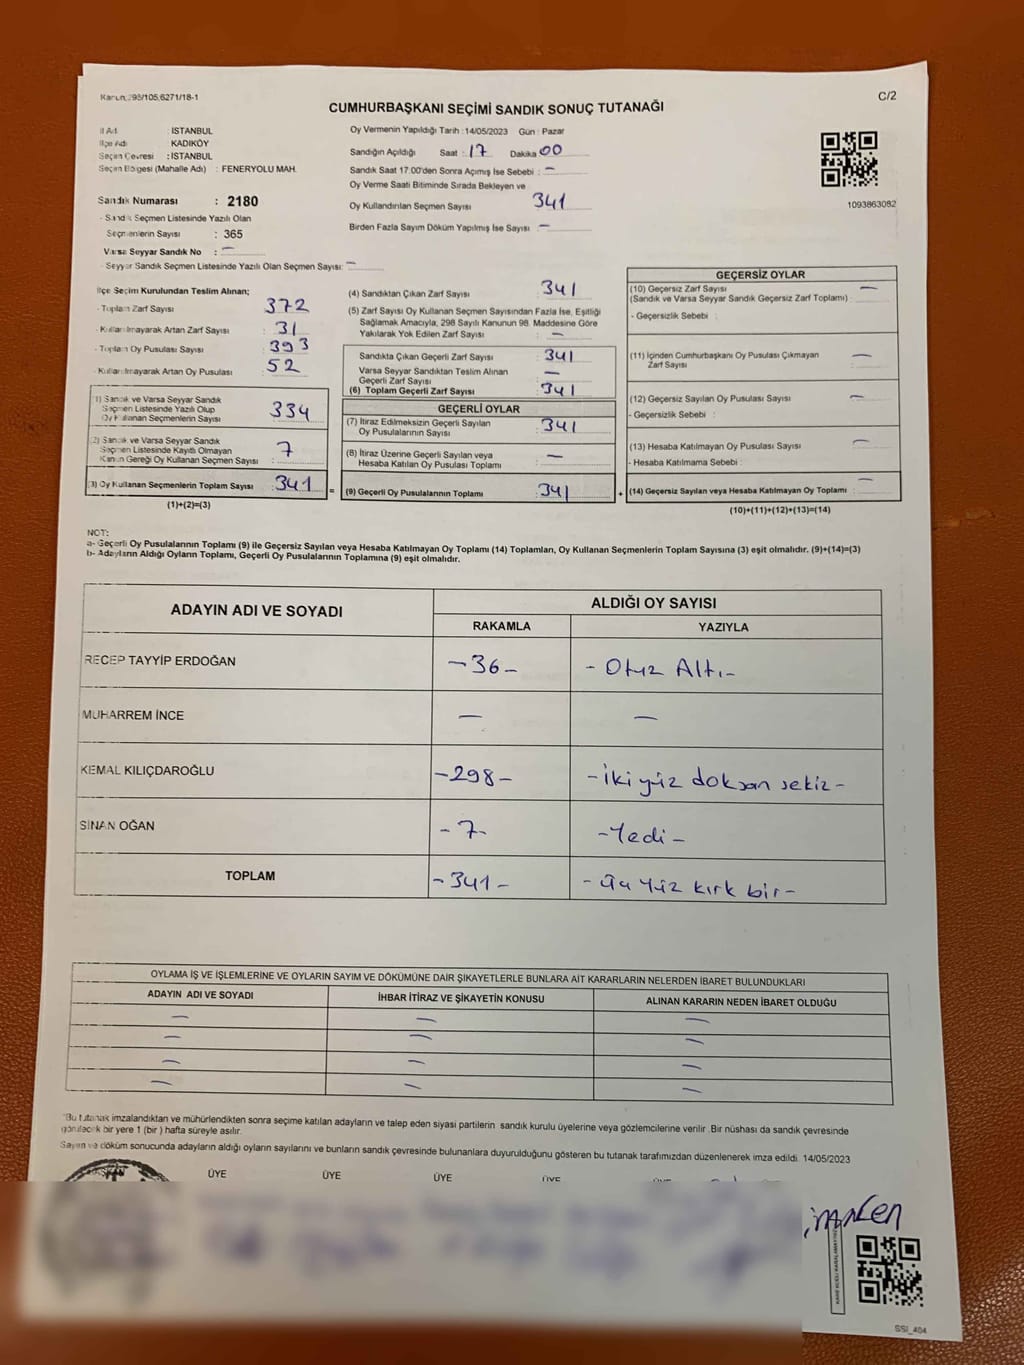 Kanun:298/105,6271/18-1
C/2
CUMHURBAŞKANI SEÇİMİ SANDIK SONUÇ TUTANAĞI
İl Adı : İSTANBUL
İlçe Adı : KADIKÖY
Seçim Çevresi : İSTANBUL
Seçim Bölgesi (Mahalle Adı) : FENERYOLU MAH.
Sandık Numarası : 2180
- Sandık Seçmen Listesinde Yazılı Olan
Seçmenlerin Sayısı : 365
Varsa Seyyar Sandık No : —
- Seyyar Sandık Seçmen Listesinde Yazılı Olan Seçmen Sayısı: —
Oy Vermenin Yapıldığı Tarih :14/05/2023 Gün : Pazar
Sandığın Açıldığı Saat : 17 Dakika 00
Sandık Saat 17.00'den Sonra Açımış İse Sebebi : —
Oy Verme Saati Bitiminde Sırada Bekleyen ve
Oy Kullandırılan Seçmen Sayısı 341
Birden Fazla Sayım Döküm Yapılmış İse Sayısı —
1093863082
İlçe Seçim Kurulundan Teslim Alınan;
- Toplam Zarf Sayısı 372
- Kullanılmayarak Artan Zarf Sayısı : 31
- Toplam Oy Pusulası Sayısı : 393
- Kullanılmayarak Artan Oy Pusulası : 52
1) Sandık ve Varsa Seyyar Sandık
Seçmen Listesinde Yazılı Olup
Oy Kullanan Seçmenlerin Sayısı : 334
2) Sandık ve Varsa Seyyar Sandık
Seçmen Listesinde Kayıtlı Olmayan
Kanun Gereği Oy Kullanan Seçmen Sayısı : 7
(3) Oy Kullanan Seçmenlerin Toplam Sayısı : 341 =
(1)+(2)=(3)
(4) Sandıktan Çıkan Zarf Sayısı : 341
(5) Zarf Sayısı Oy Kullanan Seçmen Sayısından Fazla İse, Eşitliği
Sağlamak Amacıyla, 298 Sayılı Kanunun 98. Maddesine Göre
Yakılarak Yok Edilen Zarf Sayısı : —
Sandıkta Çıkan Geçerli Zarf Sayısı : 341
Varsa Seyyar Sandıktan Teslim Alınan
Geçerli Zarf Sayısı : —
(6) Toplam Geçerli Zarf Sayısı : 341
GEÇERLİ OYLAR
(7) İtiraz Edilmeksizin Geçerli Sayılan
Oy Pusulalarının Sayısı : 341
(8) İtiraz Üzerine Geçerli Sayılan veya
Hesaba Katılan Oy Pusulası Toplamı : —
(9) Geçerli Oy Pusulalarının Toplamı : 341 +
GEÇERSİZ OYLAR
(10) Geçersiz Zarf Sayısı —
(Sandık ve Varsa Seyyar Sandık Geçersiz Zarf Toplamı) :
- Geçersizlik Sebebi :
(11) İçinden Cumhurbaşkanı Oy Pusulası Çıkmayan
Zarf Sayısı : —
(12) Geçersiz Sayılan Oy Pusulası Sayısı : —
- Geçersizlik Sebebi :
(13) Hesaba Katılmayan Oy Pusulası Sayısı : —
- Hesaba Katılmama Sebebi :
(14) Geçersiz Sayılan veya Hesaba Katılmayan Oy Toplamı : —
(10)+(11)+(12)+(13)=(14)
NOT:
a- Geçerli Oy Pusulalarının Toplamı (9) ile Geçersiz Sayılan veya Hesaba Katılmayan Oy Toplamı (14) Toplamları, Oy Kullanan Seçmenlerin Toplam Sayısına (3) eşit olmalıdır. (9)+(14)=(3)
b- Adayların Aldığı Oyların Toplamı, Geçerli Oy Pusulalarının Toplamına (9) eşit olmalıdır.
ADAYIN ADI VE SOYADI
ALDIĞI OY SAYISI
RAKAMLA YAZIYLA
RECEP TAYYİP ERDOĞAN -36- - Otuz Altı -
MUHARREM İNCE — —
KEMAL KILIÇDAROĞLU -298- -iki yüz doksan sekiz-
SİNAN OĞAN -7- -Yedi-
TOPLAM -341- -Üç Yüz kırk bir-
OYLAMA İŞ VE İŞLEMLERİNE VE OYLARIN SAYIM VE DÖKÜMÜNE DAİR ŞİKAYETLERLE BUNLARA AİT KARARLARIN NELERDEN İBARET BULUNDUKLARI
ADAYIN ADI VE SOYADI İHBAR İTİRAZ VE ŞİKAYETİN KONUSU ALINAN KARARIN NEDEN İBARET OLDUĞU
— — —
— — —
— — —
— — —
*Bu tutanak imzalandıktan ve mühürlendikten sonra seçime katılan adayların ve talep eden siyasi partilerin sandık kurulu üyelerine veya gözlemcilerine verilir. Bir nüshası da sandık çevresinde
görülecek bir yere 1 (bir ) hafta süreyle asılır.
Sayım ve döküm sonucunda adayların aldığı oyların sayılarını ve bunların sandık çevresinde bulunanlara duyurulduğunu gösteren bu tutanak tarafımızdan düzenlenerek imza edildi. 14/05/2023
BAŞKAN ÜYE ÜYE ÜYE ÜYE
SSİ_404